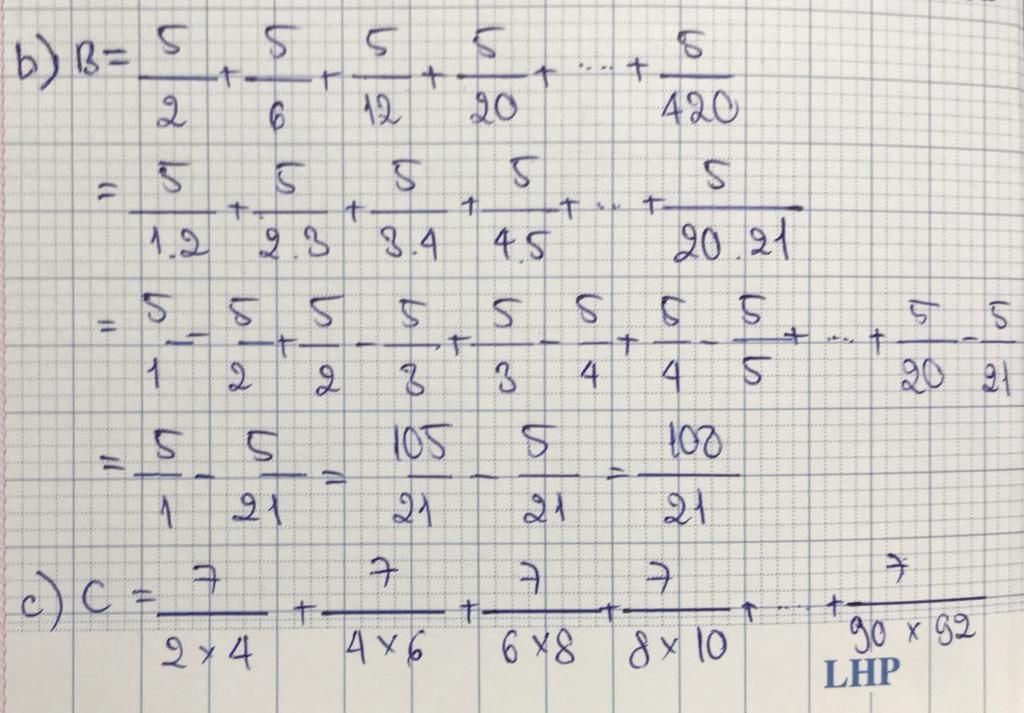 b) B = 5/2 + 5/6 + 5/12 + 5/20 + .... + 5/420
= 5/1.2 + 5/2.3 + 5/3.4 + 5/4.5 + ... + 5/20.21
= 5/1 - 5/2 + 5/2 - 5/3 + 5/3 - 5/4 + 5/4 - 5/5 + ... + 5/20 - 5/21
= 5/1 - 5/21 = 105/21 - 5/21 = 100/21
c) C = 7/2×4 + 7/4×6 + 7/6×8 + 7/8×10 + .... + 7/90×92
LHP